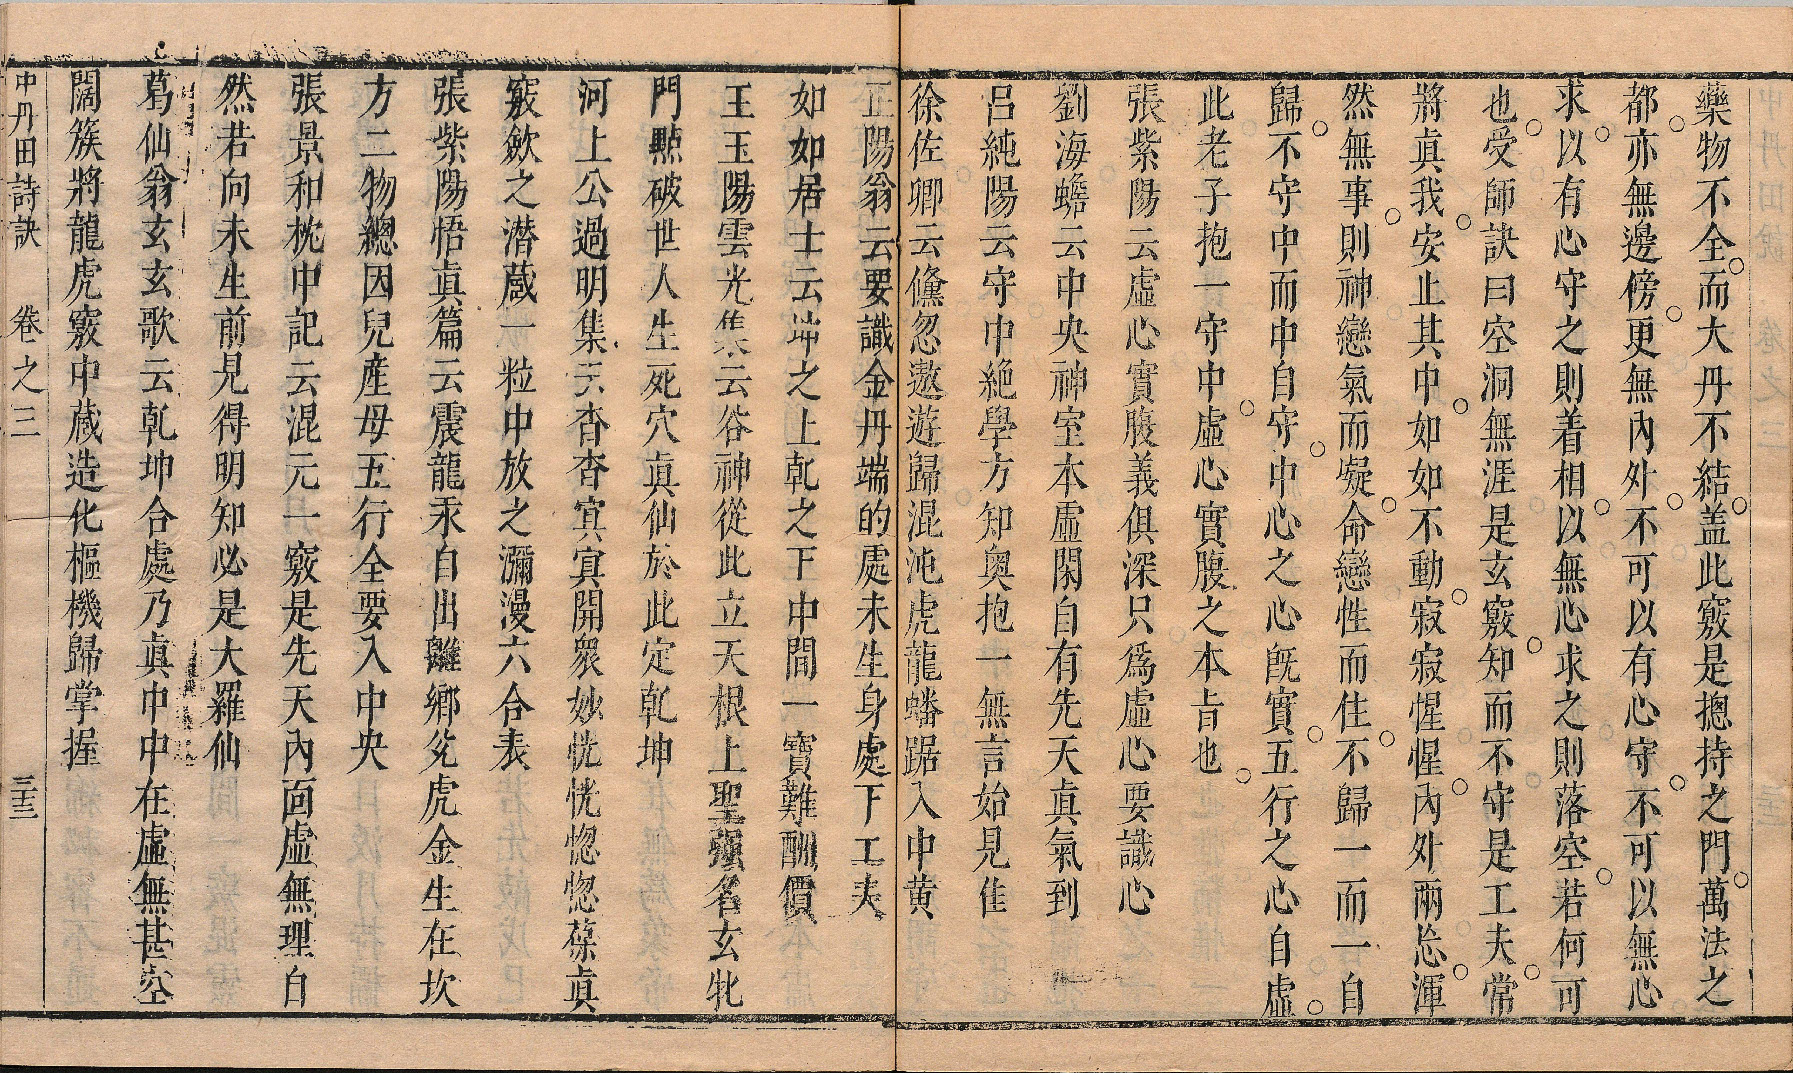 藥物不全而大丹不結盖此竅是摠持之門萬法之
都亦無邊傍更無內外不可以有心守不可以無心
求以有心守之則着相以無心求之則落空若何可
也受師訣曰空洞無涯是玄竅知而不守是工夫常
將眞我安止其中如如不動寂寂惺惺內外兩忘渾
然無事則神戀氣而凝命戀性而住不歸一而一自
歸不守中而中自守中心之心旣實五行之心自虛
此老子抱一守中虛心實腹之本旨也
張紫陽云虛心實腹義俱深只爲虛心要識心
劉海蟾云中央神室本虛閑自有先天眞氣到
呂純陽云守中絶學方知奥抱一無言始見佳
徐佐卿云儵忽遨遊歸混沌虎龍蟠踞入中黄
正陽翁云要識金丹端的處未生身處下工夫
如如居士云坤之上乹之下中間一寶難酬價
王玉陽雲光集云谷神從此立天根上聖强名玄牝
門㸃破世人生死穴眞仙於此定乹坤
河上公過明集云杳杳冥冥開衆妙恍恍惚惚葆眞
竅歛之潜蔵一粒中放之瀰漫六合表
張紫陽悟眞篇云震龍汞自出離鄉兊虎金生在坎
方二物總因兒産母五行全要入中央
張景和枕中記云混元一竅是先天內面虛無理自
然若向未生前見得明知必是大羅仙
葛仙翁玄玄歌云乹坤合處乃眞中中在虛無甚空
闊簇將龍虎竅中蔵造化樞機歸掌握
中丹田詩訣 卷之三 三十三